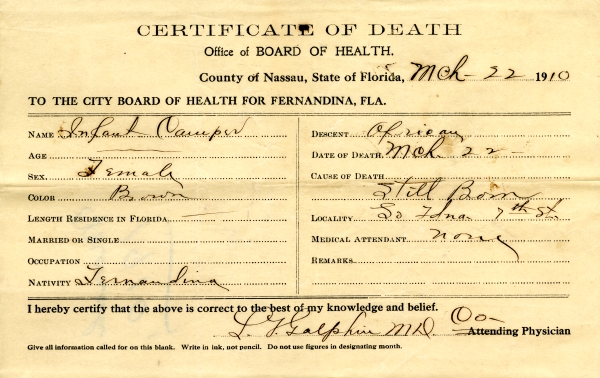 CERTIFICATE OF DEATH
Office of BOARD OF HEALTH.
County of Nassau, State of Florida, Mch- 22 1910
TO THE CITY BOARD OF HEALTH FOR FERNANDINA, FLA.
NAME Infant Camper
AGE
SEX. Female
COLOR Brown
LENGTH RESIDENCE IN FLORIDA
MARRIED OR SINGLE
OCCUPATION
NATIVITY Fernandina
DESCENT African
DATE OF DEATH Mch 22-
CAUSE OF DEATH
Still Born
LOCALITY So Fdna 7th St.
MEDICAL ATTENDANT none
REMARKS
I hereby certify that the above is correct to the best of my knowledge and belief.
Galphin MD. Co-
Attending Physician
Give all information called for on this blank. Write in ink, not pencil. Do not use figures in designating month.